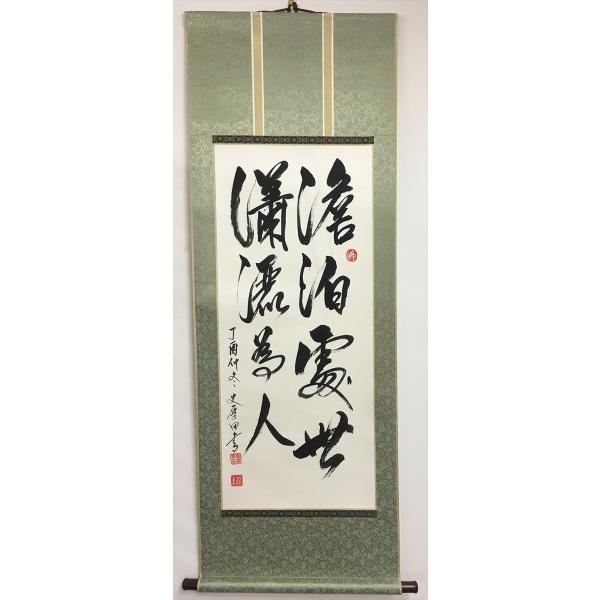 澹泊處世
瀟灑為人
丁酉仲冬 史厚田書